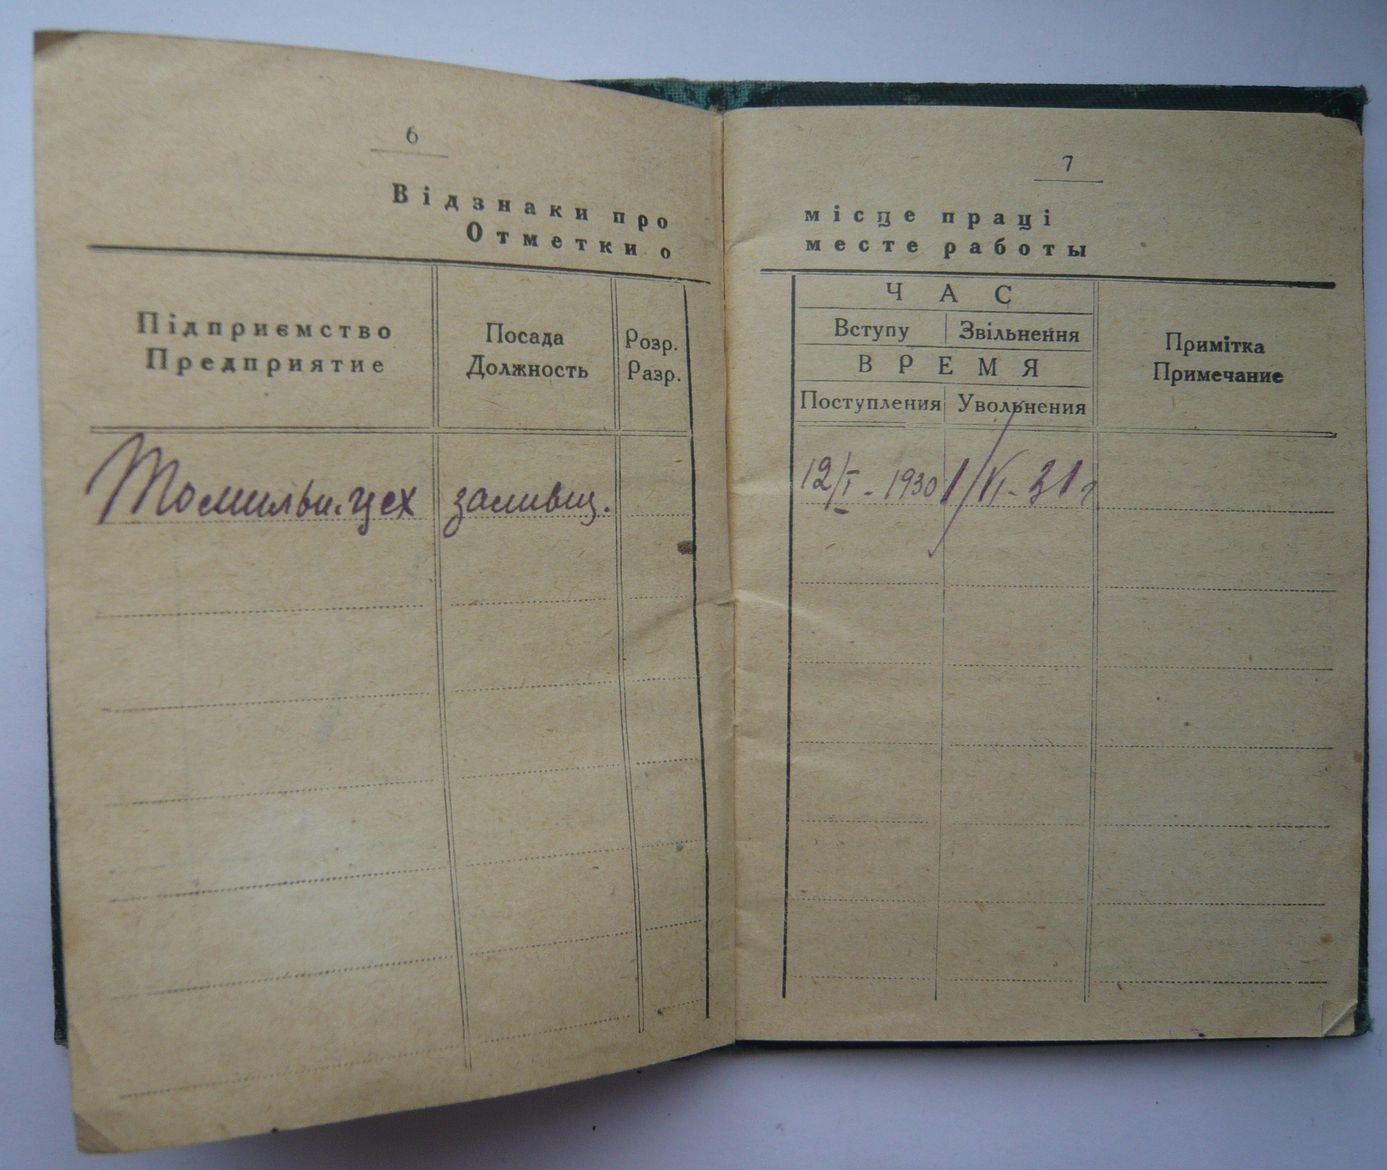 6
Відзнаки про
Отметки о
Підприємство
Предприятие
Посада
Должность
Розр.
Разр.
цех заливщ.
7
місце праці
месте работы
ЧАС
Вступу Звільнення
ВРЕМЯ
Поступления Увольнения
Примітка
Примечание
12/I - 1930 1/VI - 31 г